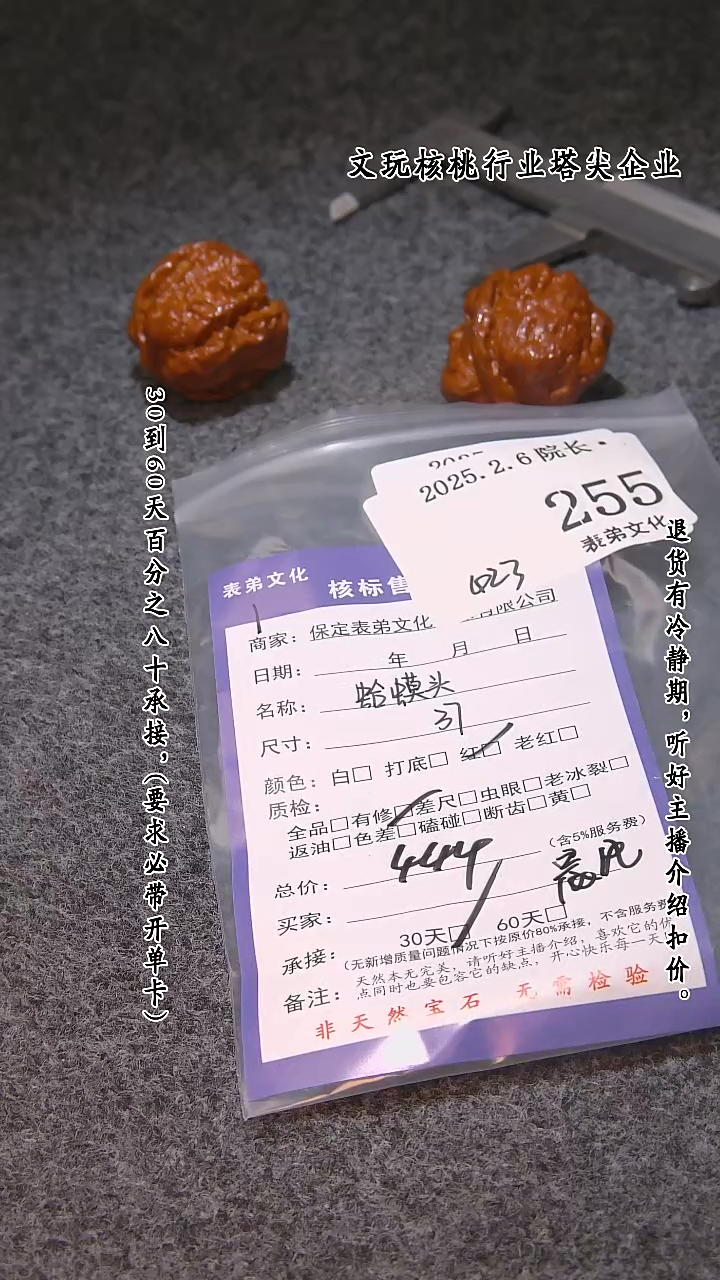 文玩核桃行业塔尖企业
30到60天百分之八十承接，（要求必带开单卡）
退货有冷静期，听好主播介绍扣价。
2025.2.6 院长
255
表弟文化
423
表弟文化 核标售
商家：保定表弟文化 有限公司
日期： 年 月 日
名称： 蛤蟆头
尺寸： 37
颜色：白□ 打底□ 红□ 老红□
质检：
全品□有修□差尺□虫眼□老冰裂□
返油□色差□磕碰□断齿□黄□
总价： 444 （含5%服务费）
买家：
承接： 30天□ 60天□
（无新增质量问题情况下按原价80%承接，不含服务费
备注： 天然本无完美，请听好主播介绍，喜欢它的优
点同时也要包容它的缺点，开心快乐每一天
非天然宝石 无需检验